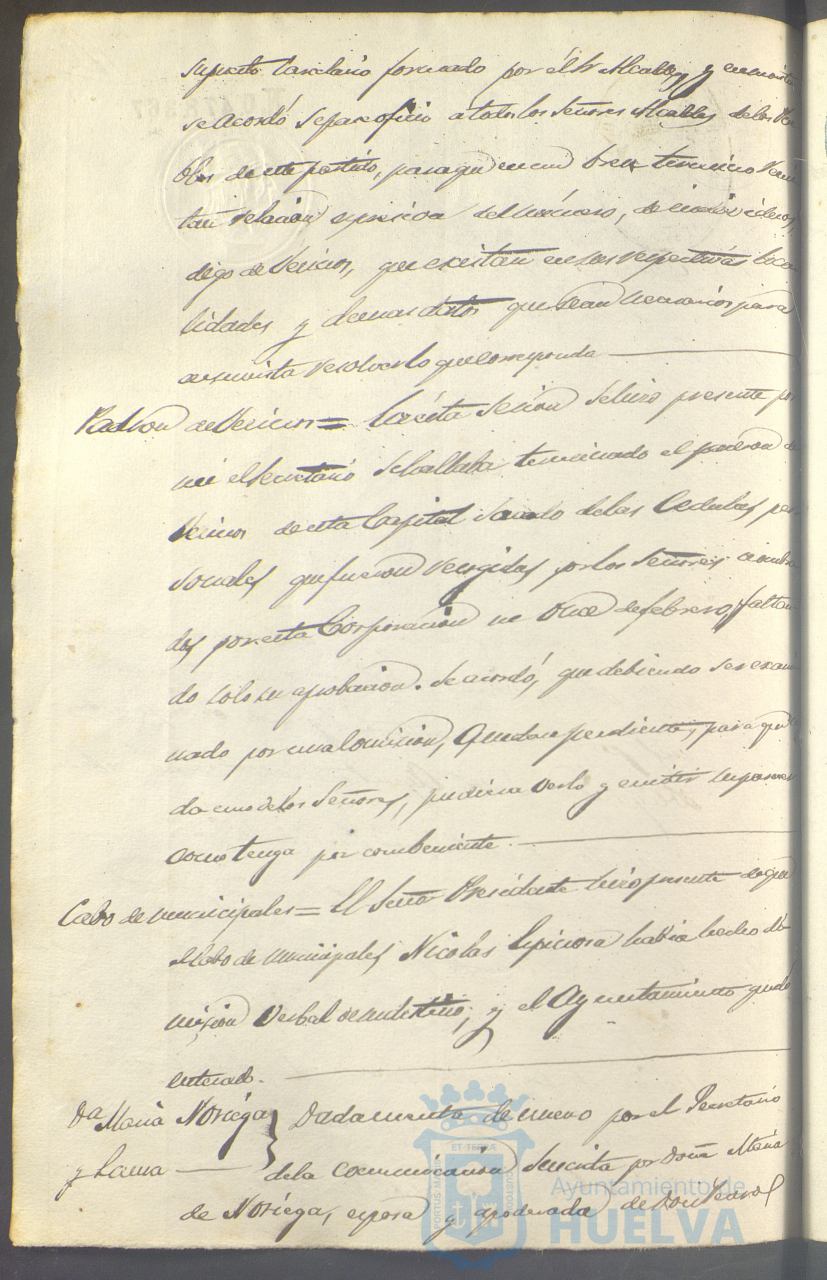 supuesto carcelario formado por él Sr Alcalde, y en vista
se acordó se pase oficio a todos los Señores Alcaldes de los Pue
blos de este partido, para que en un breve termino remi
tan relacion espresiva del número, de individuos,
digo de Vecinos, que existan en sus respectivas loca
lidades y demas datos que sean necesarios para
en su vista resolver lo que corresponda
Padron de Vecinos = En esta Sesion se hizo presente por
mi el Secretario se hallaba terminado el padron de
Vecinos de esta Capital sacado de las Cedulas per
sonales que fueron recogidas por los Señores nombra
dos por esta Corporacion en Once de febrero, faltan
do solo su aprobacion. Se acordó, que debiendo ser exami
nado por una Comision, quedase pendiente, para que ca
da uno de los Señores, pudiera verlo y emitir su parecer
como tenga por combeniente.
Cabo de municipales = El Señor Presidente hizo presente de que
el Cabo de municipales Nicolas Espinosa habia hecho di
mision verbal de su destino, y el Ayuntamiento quedó
enterado.
Da Maria Noriega } Dada cuenta de nuevo por el Secretario
y Lama — de la comunicacion suscrita por Doña Maria
de Noriega, esposa y apoderada de Don Pedro
Ayuntamiento de
HUELVA